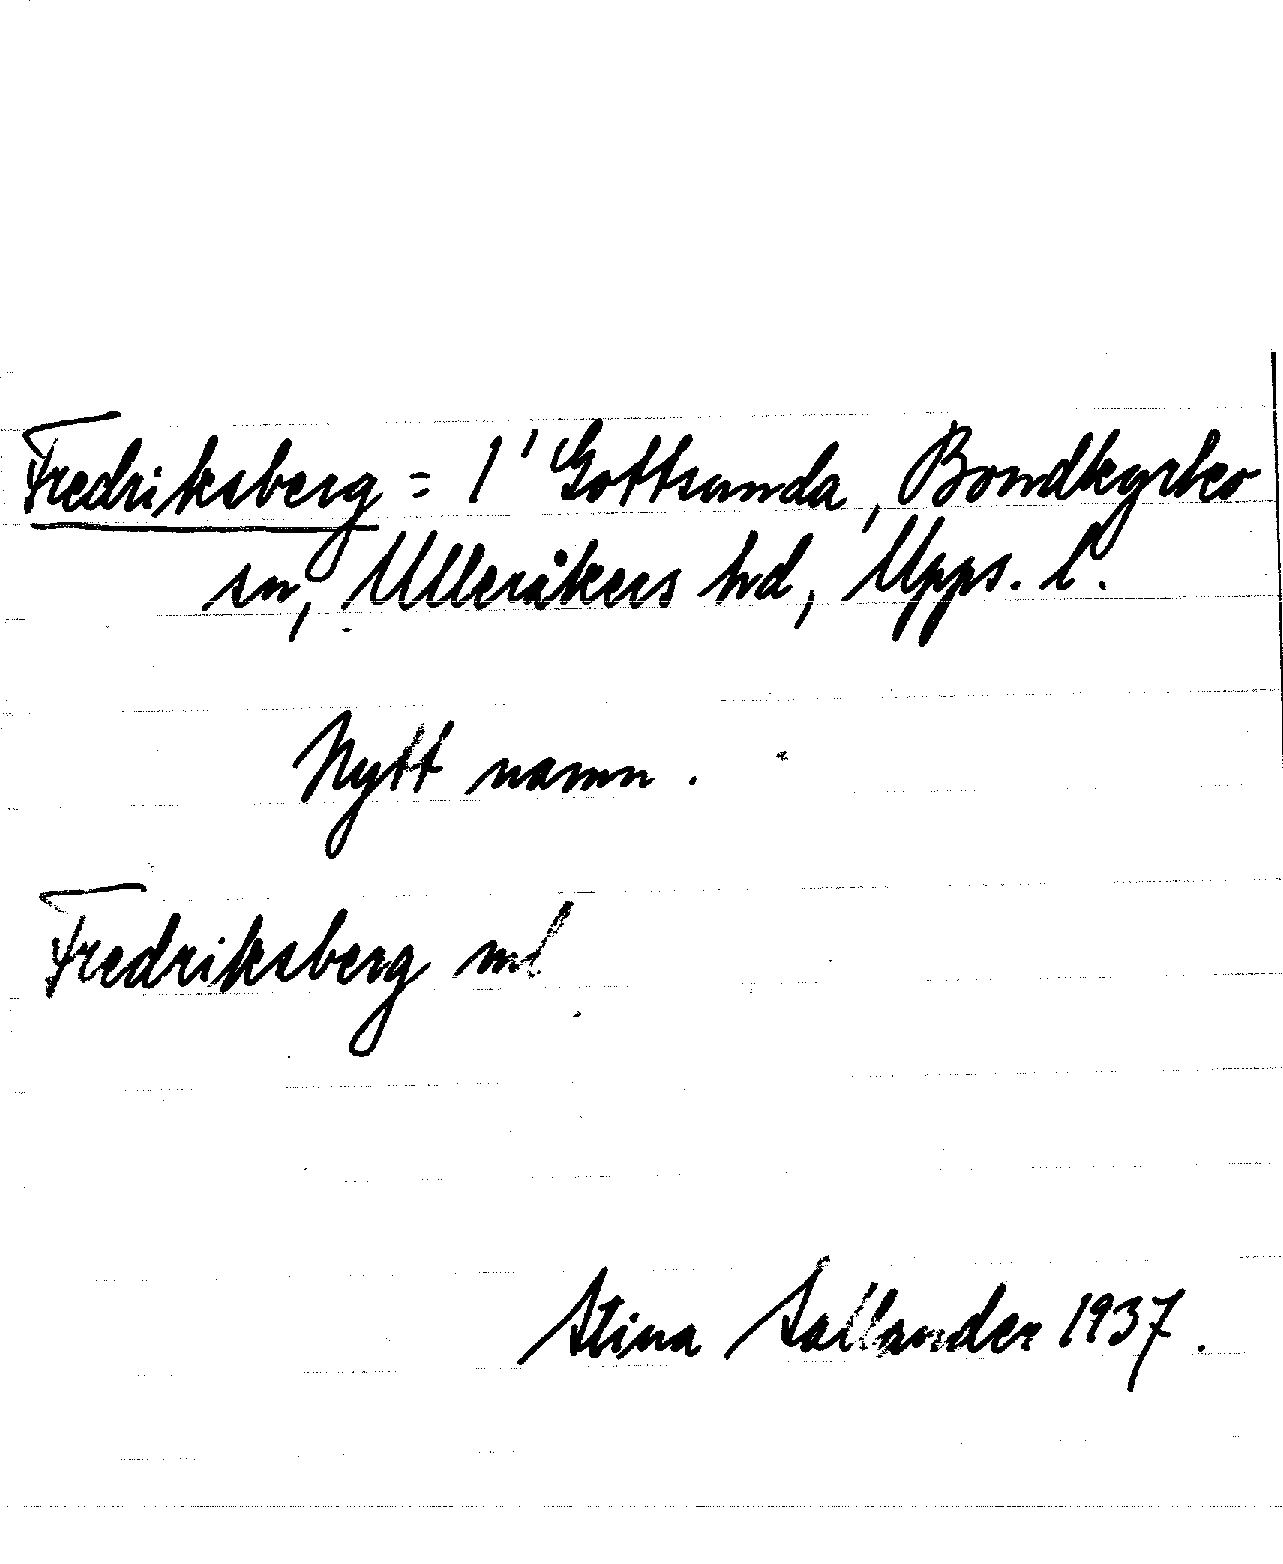 Fredriksberg = 1' Gottsunda, Bondkyrko
sn, Ulleråkers hd, Upps. l.
Nytt namn.
Fredriksberg ml
Stina Sallander 1937.